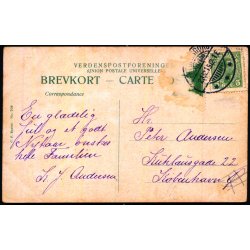 VERDENSPOSTFORENING
(UNION POSTALE UNIVERSELLE)
BREVKORT - CARTE
Correspondance
En glædelig
jul og et godt
Nytaar ønskes
hele Familien
K. J. Andersen
Hr.
Peter Andersen
22
København